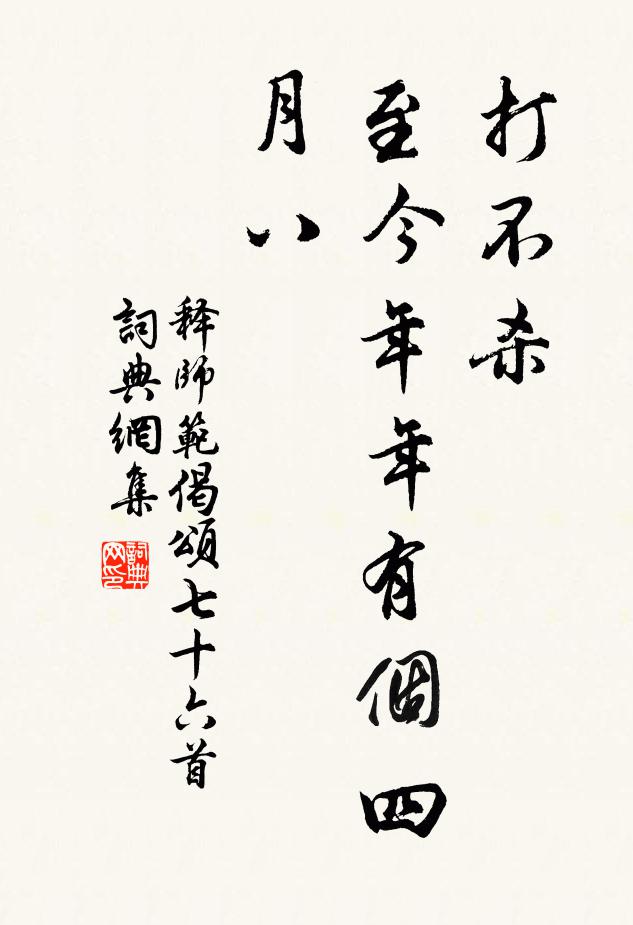 打不杀
至今年年有個四
月八
释師範偈頌七十六首
詞典網集
詞典网印